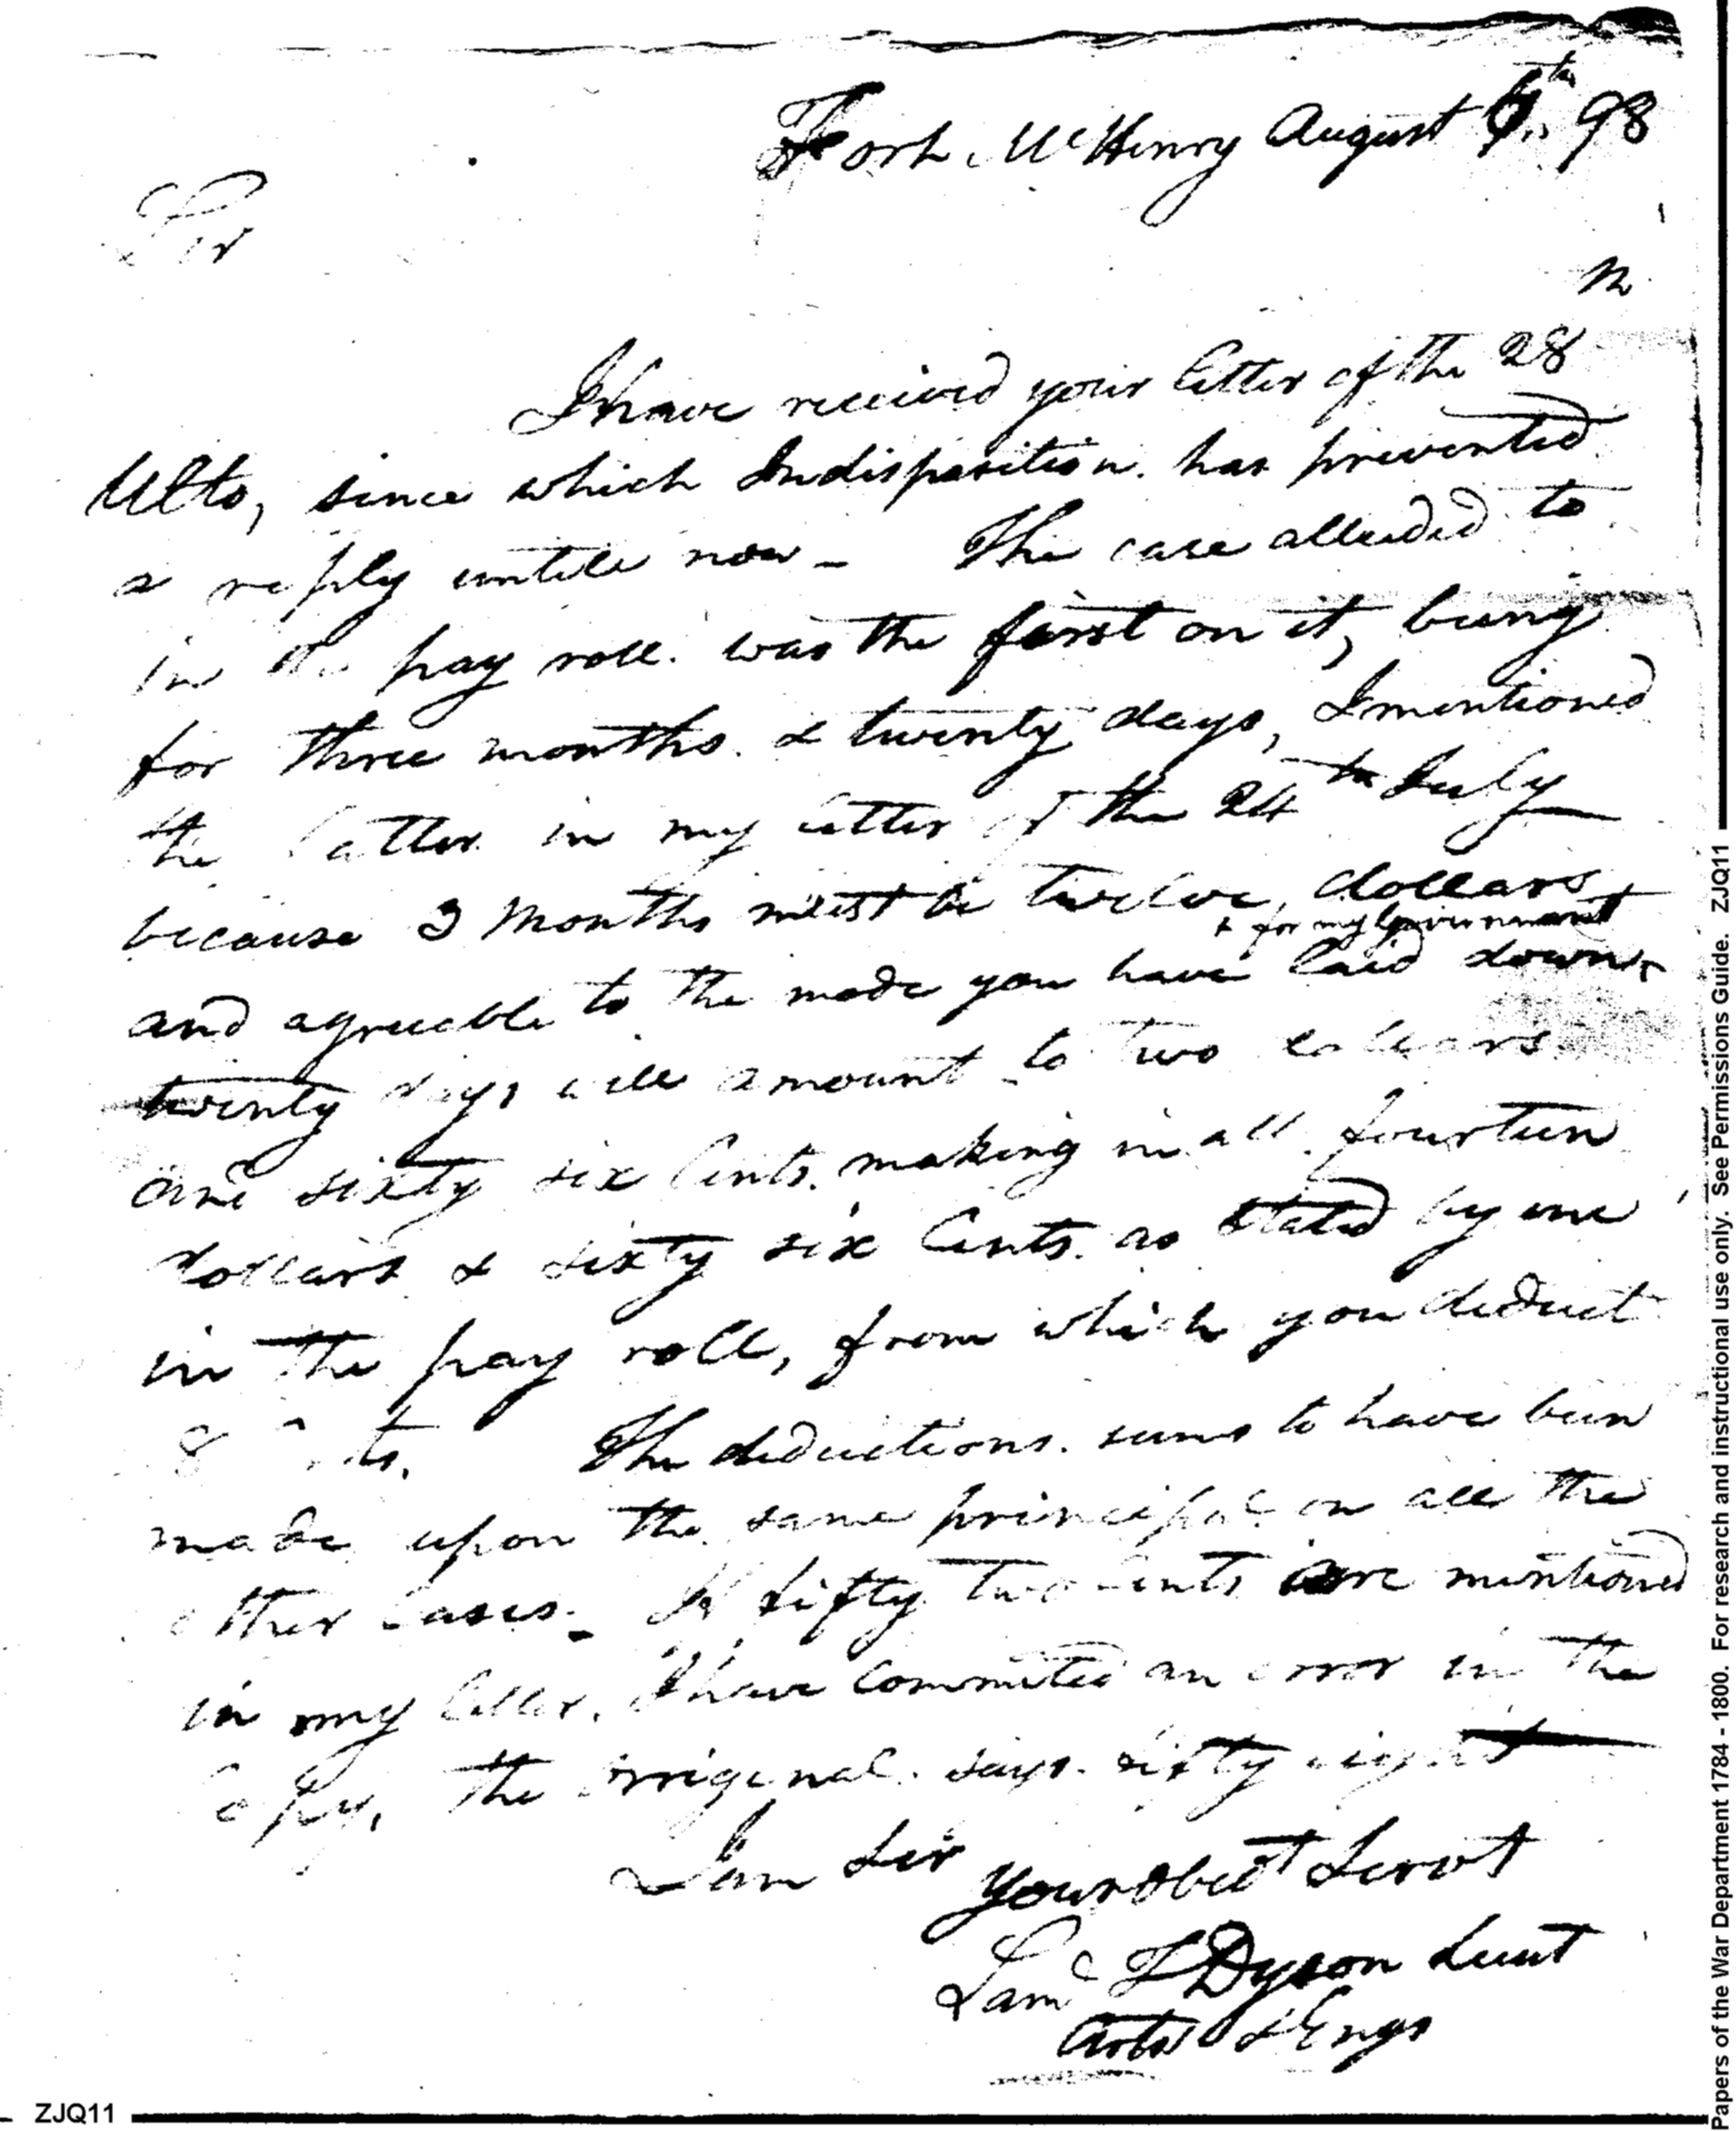 Fort McHenry August 98
Sir
I have received your letter of the 28
Ulto, since which Indisposition has prevented
a reply untill now - The case alluded to
in the pay roll. was the first on it, being
for three months. & twenty days, I mentioned
the latter in my letter of the 24th July
because 3 Months must be twelve dollars
+ for my Government
and agreeable to the mode you have laid down +
twenty days will amount to two dollars
and sixty six Cents. making in all fourteen
dollars & sixty six Cents. as stated by me
in the pay roll, from which you deduct
8 Cents. The deductions. seems to have been
made upon the same principal on all the
other Cases - If fifty two Cents are mentioned
in my letter, I have committed an error in the
Copy, the orriginal. says. sixty eight
I am Sir your obedt Servt
Saml T Dyson Lieut
Arts & Engs
ZJQ11
Papers of the War Department 1784 - 1800. For research and instructional use only. See Permissions Guide. ZJQ11